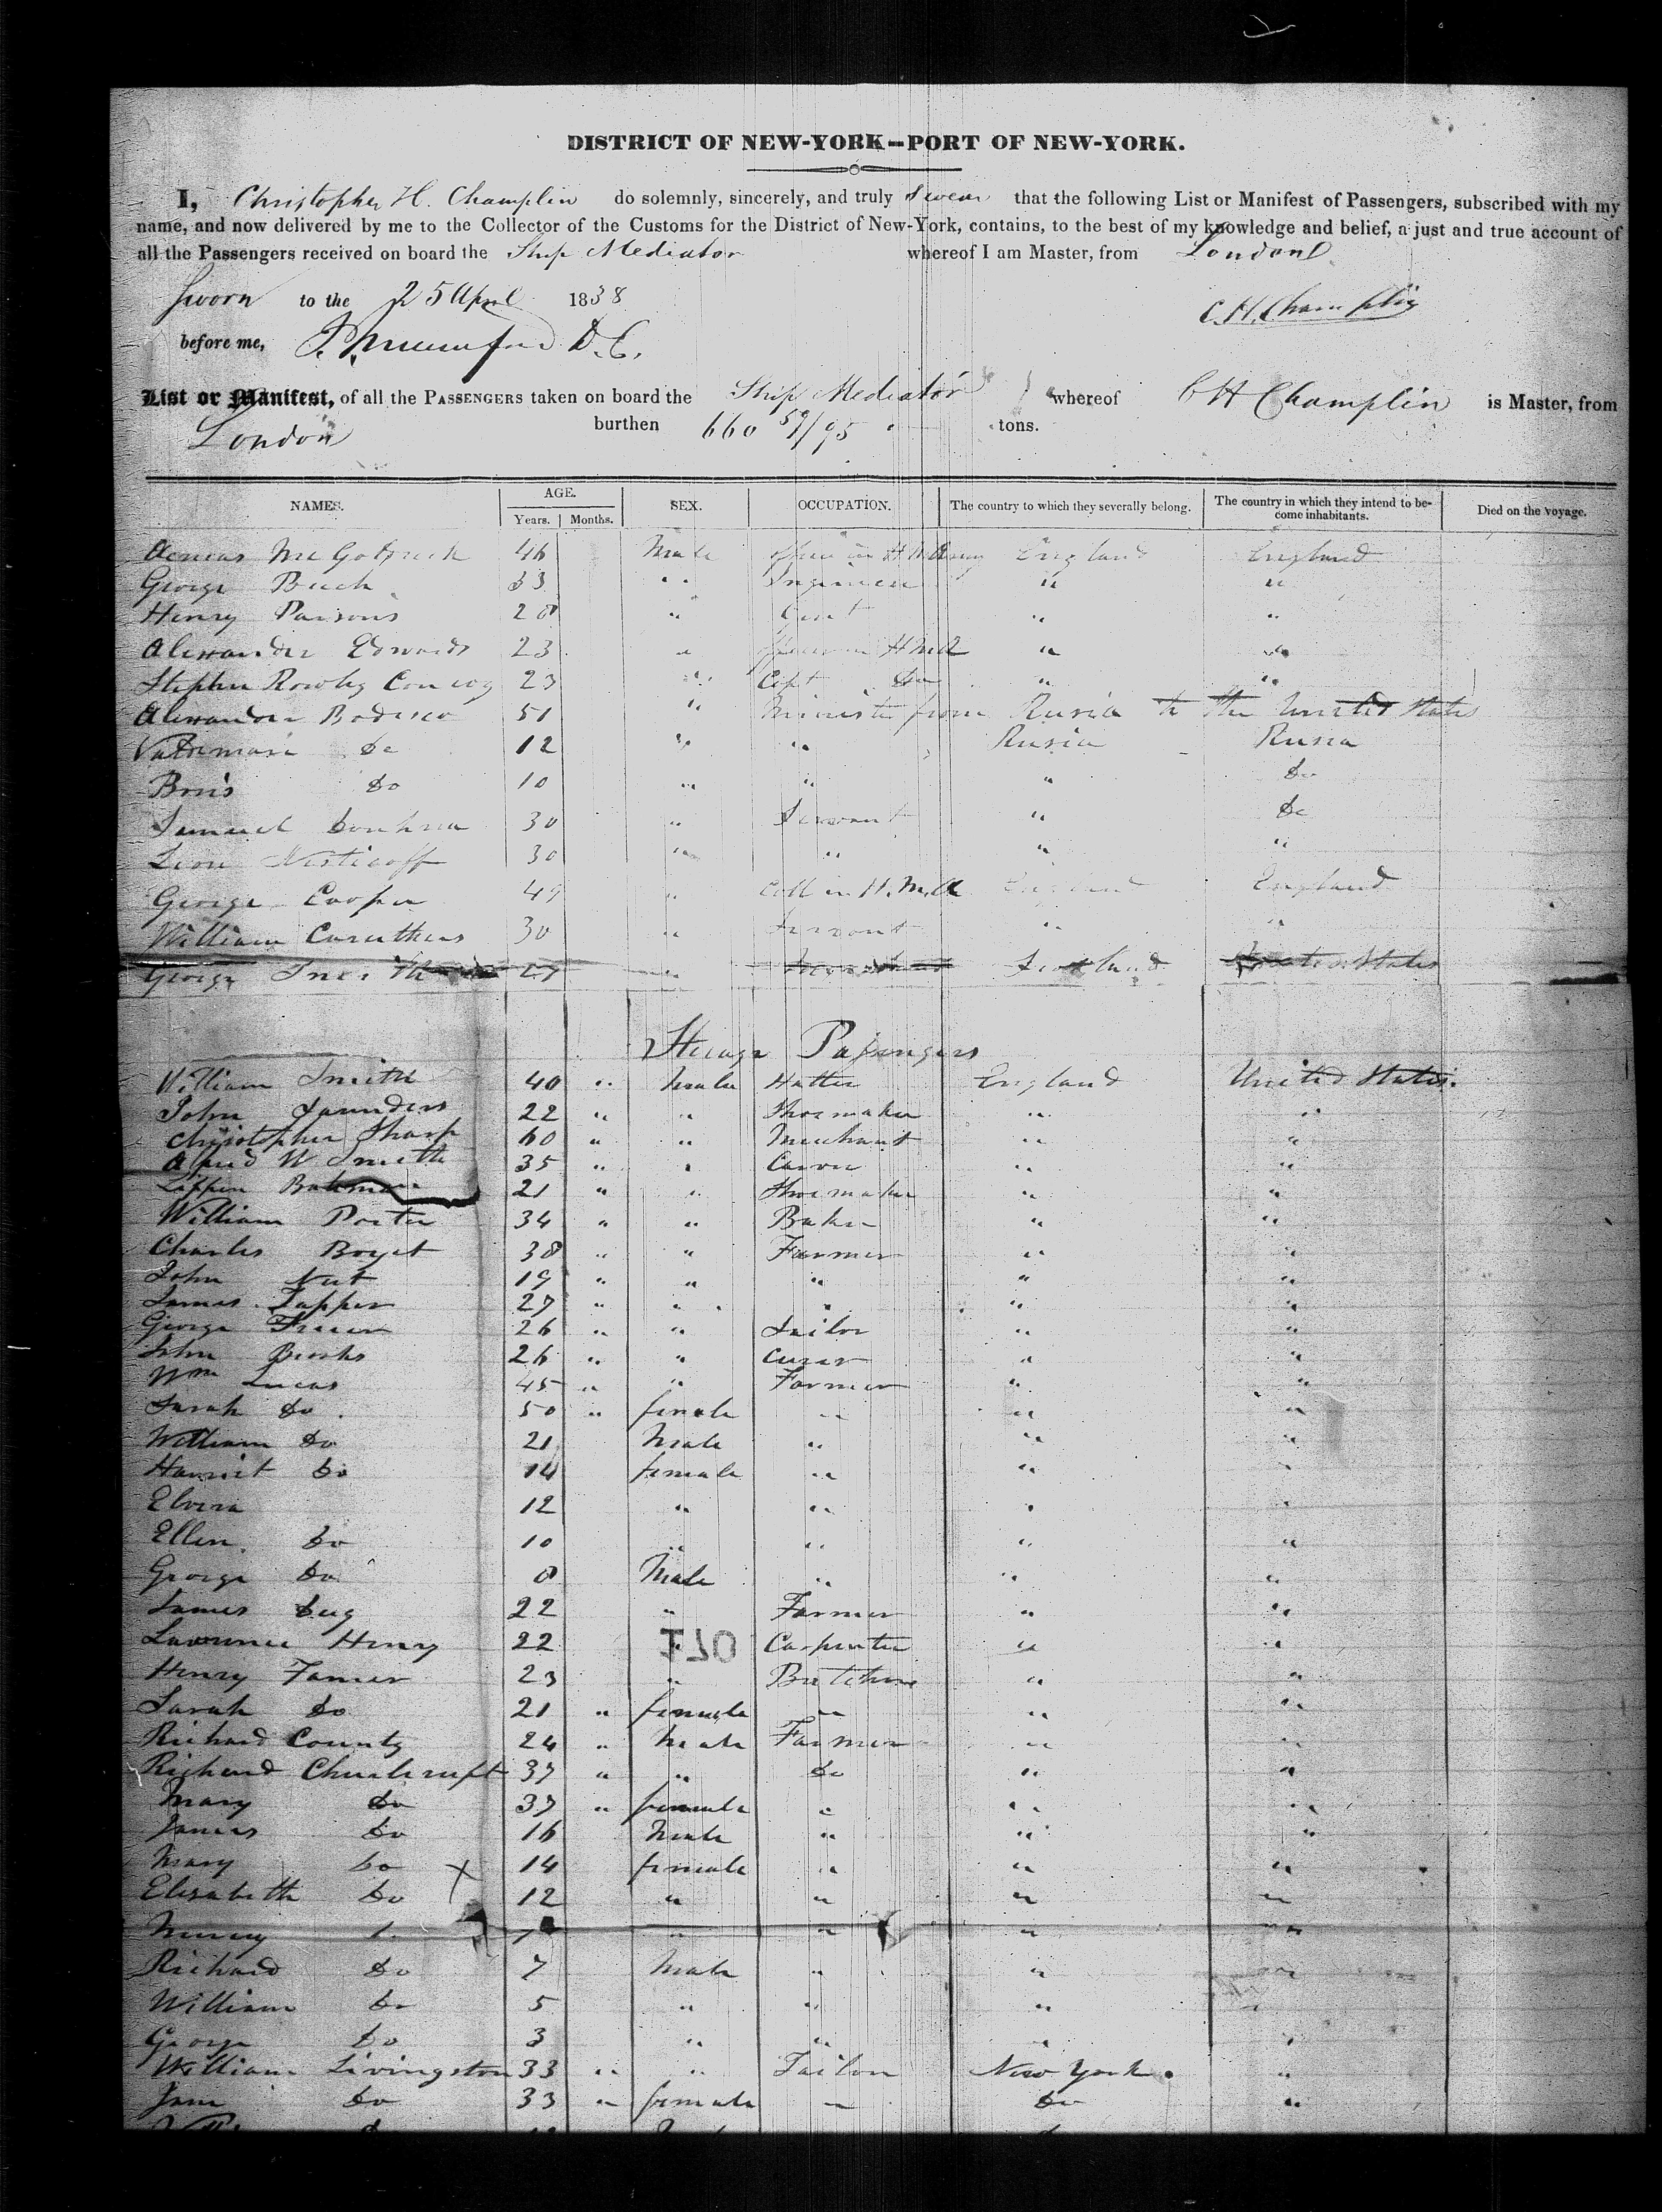 DISTRICT OF NEW-YORK--PORT OF NEW-YORK.
I, Christopher H. Champlin do solemnly, sincerely, and truly Swear that the following List or Manifest of Passengers, subscribed with my
name, and now delivered by me to the Collector of the Customs for the District of New-York, contains, to the best of my knowledge and belief, a just and true account of
all the Passengers received on board the Ship Mediator whereof I am Master, from London
Sworn to the 25 April 1838
C. H. Champlin
before me, D. C.
List or Manifest, of all the PASSENGERS taken on board the Ship Mediator whereof C H Champlin is Master, from
London burthen 660 59/95 tons.
NAMES. AGE. SEX. OCCUPATION. The country to which they severally belong. The country in which they intend to become inhabitants. Died on the voyage.
Years. Months.
46 Male England England
George 33 " Ingineer " "
Henry Parsons 28 " Gent " "
Alexander Edwards 23 " " "
Stephen Rowley Conway 23 " Capt Do " "
Alexander Bodisco 51 " Minister from Rusia to the United States
Do 12 " " Rusia Rusia
Boris Do 10 " " " Do
Samuel 30 " Servant " Do
30 " " " "
George Cooper 49 " in H. M. A England England
William Caruthers 30 " Servant " "
George 27 " Scotland United States
Sterage Pasengers
William Smith 40 " Male Hatter England United States.
John Saunders 22 " " Shoemaker " "
Christopher Sharp 60 " " Merchant " "
Alfred W Smith 35 " " " "
Bateman 21 " " Shoemaker " "
William Porter 34 " " Baker " "
Charles Boyet 38 " " Farmer " "
John Nut 19 " " " " "
James Tapper 27 " " " " "
George 26 " " Tailor " "
John Brooks 26 " " " "
Wm Lucas 45 " " Farmer " "
Sarah Do 50 " female " " "
William Do 21 Male " " "
Harriet Do 14 female " " "
Elvira 12 " " " "
Ellen Do 10 " " " "
George Do 8 Male " " "
James 22 " Farmer " "
Lawrence Henry 22 " Carpenter " "
Henry 23 " Butcher " "
Sarah Do 21 " female " " "
Richard County 24 " Male Farmer " "
Richard 37 " " Do " "
Mary Do 37 " female " " "
James Do 16 Male " " "
Mary Do X 14 female " " "
Elisabeth Do 12 " " " "
" " " "
Richard Do 7 Male " " "
William Do 5 " " " "
George Do 3 " " " "
William Livingston 33 " " Tailor New York. "
Jane Do 33 " female " Do "